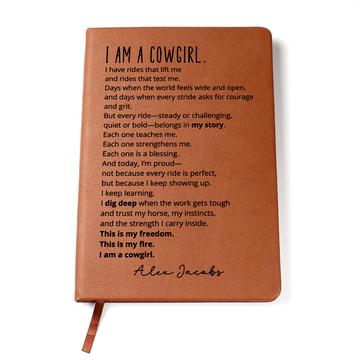 I AM A COWGIRL.
I have rides that lift me
and rides that test me.
Days when the world feels wide and open,
and days when every stride asks for courage
and grit.
But every ride—steady or challenging,
quiet or bold—belongs in my story.
Each one teaches me.
Each one strengthens me.
Each one is a blessing.
And today, I'm proud—
not because every ride is perfect,
but because I keep showing up.
I keep learning.
I dig deep when the work gets tough
and trust my horse, my instincts,
and the strength I carry inside.
This is my freedom.
This is my fire.
I am a cowgirl.
Alex Jacobs